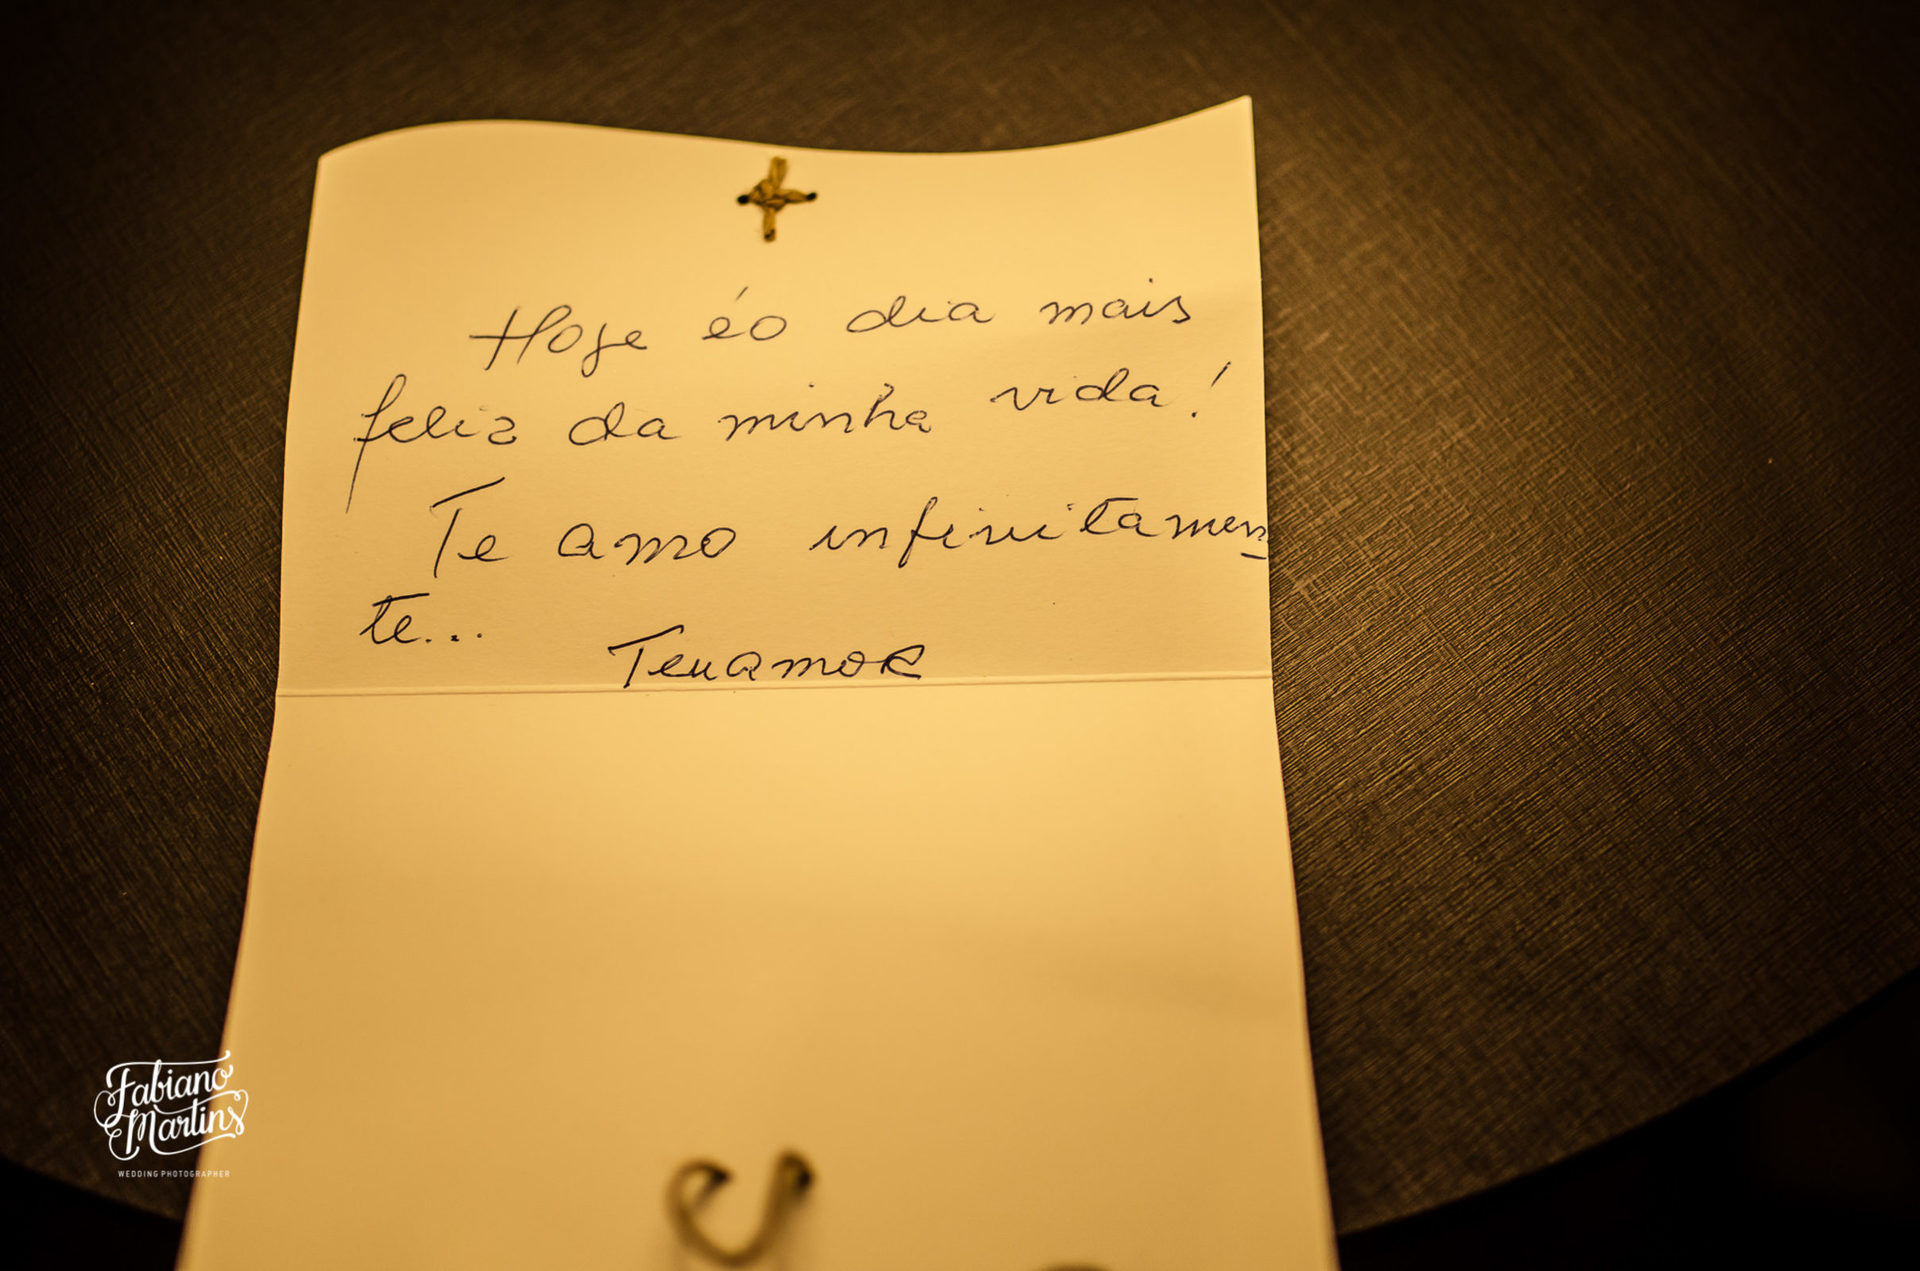 Hoje é o dia mais
feliz da minha vida!
Te amo infinitamen
te...
Teuamor
Fabiano
Martins
WEDDING PHOTOGRAPHER